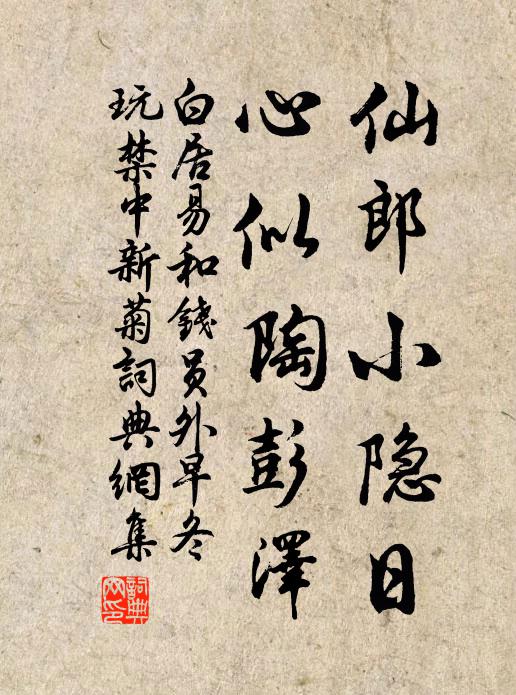 仙郎小隐日
心似陶彭澤
白居易和錢员外早冬
玩禁中新菊詞典網集
詞典
网印